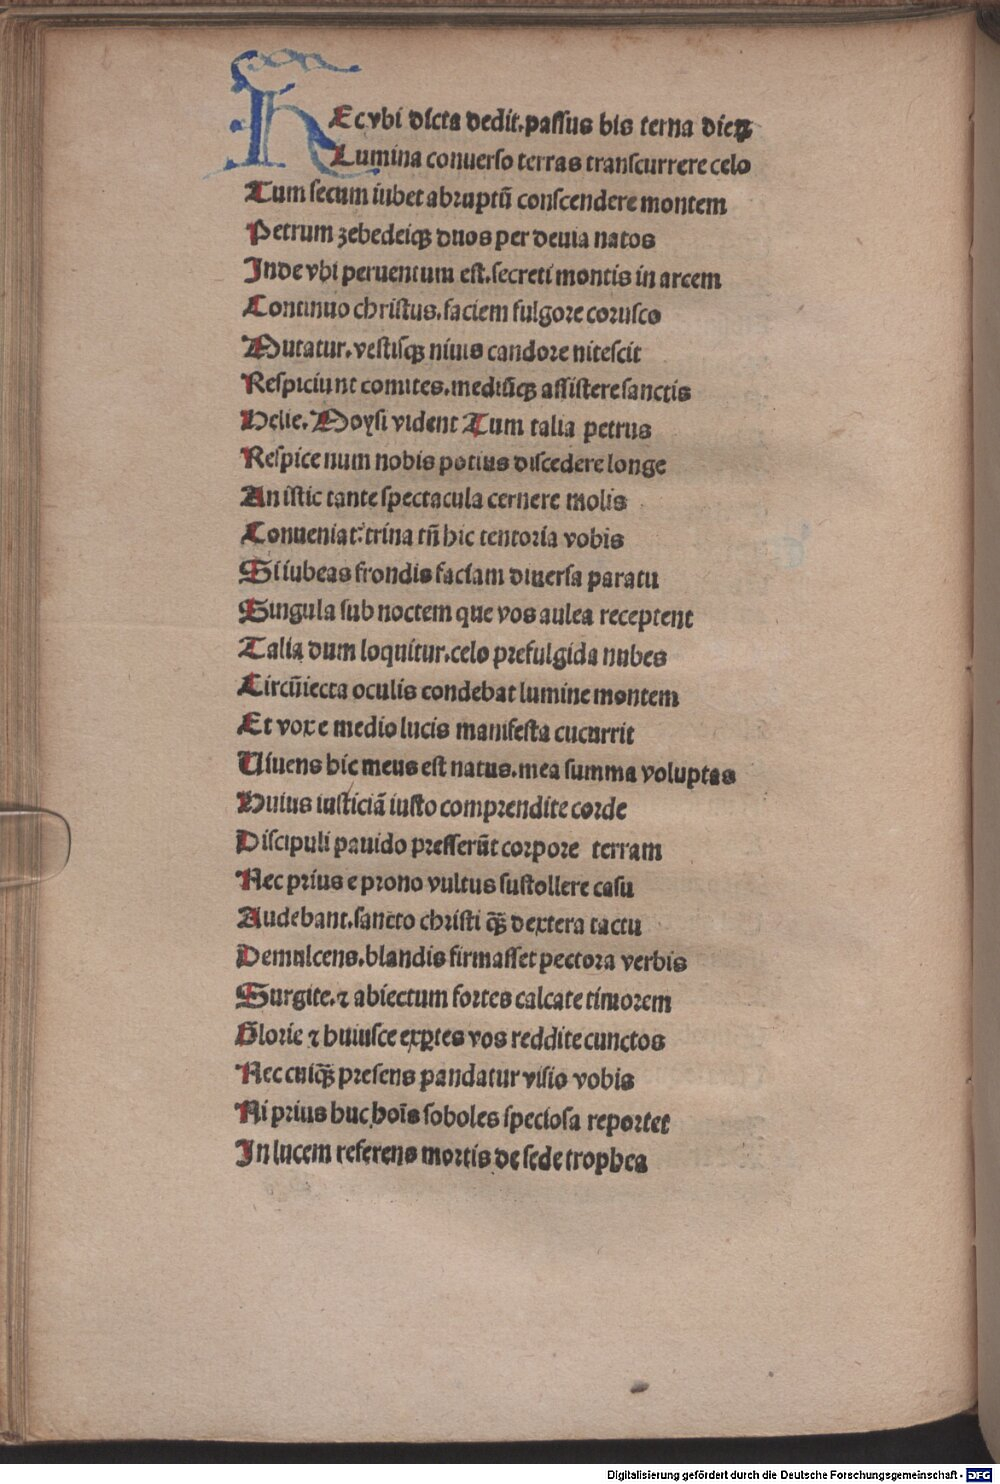 HEc vbi dicta dedit. passus bis terna dieꝝ
Lumina conuerso terras transcurrere celo
Tum secum iubet abruptū conscendere montem
Petrum zebedeiqꝫ duos per deuia natos
Inde vbi peruentum est. secreti montis in arcem
Continuo christus. faciem fulgore corusco
Mutatur. vestisqꝫ niuis candore nitescit
Respiciunt comites. mediūqꝫ assistere sanctis
Helie. Moysi vident Tum talia petrus
Respice num nobis potius discedere longe
An istic tante spectacula cernere molis
Conueniat: trina tñ hic tentoria vobis
Si iubeas frondis faciam diuersa paratu
Singula sub noctem que vos aulea receptent
Talia dum loquitur. celo prefulgida nubes
Circūiecta oculis condebat lumine montem
Et vox e medio lucis manifesta cucurrit
Uiuens hic meus est natus. mea summa voluptas
Huius iusticiā iusto comprendite corde
Discipuli pauido presserūt corpore terram
Nec prius e prono vultus sustollere casu
Audebant. sancto christi qꝫ̄ dextera tactu
Demulcens. blandis firmasset pectora verbis
Surgite. ⁊ abiectum fortes calcate timorem
Glorie ⁊ huiusce exꝑtes vos reddite cunctos
Nec cuiqꝫ̄ presens pandatur visio vobis
Ni prius huc hoīs soboles speciosa reportet
In lucem referens mortis de sede trophea
Digitalisierung gefördert durch die Deutsche Forschungsgemeinschaft - DFG